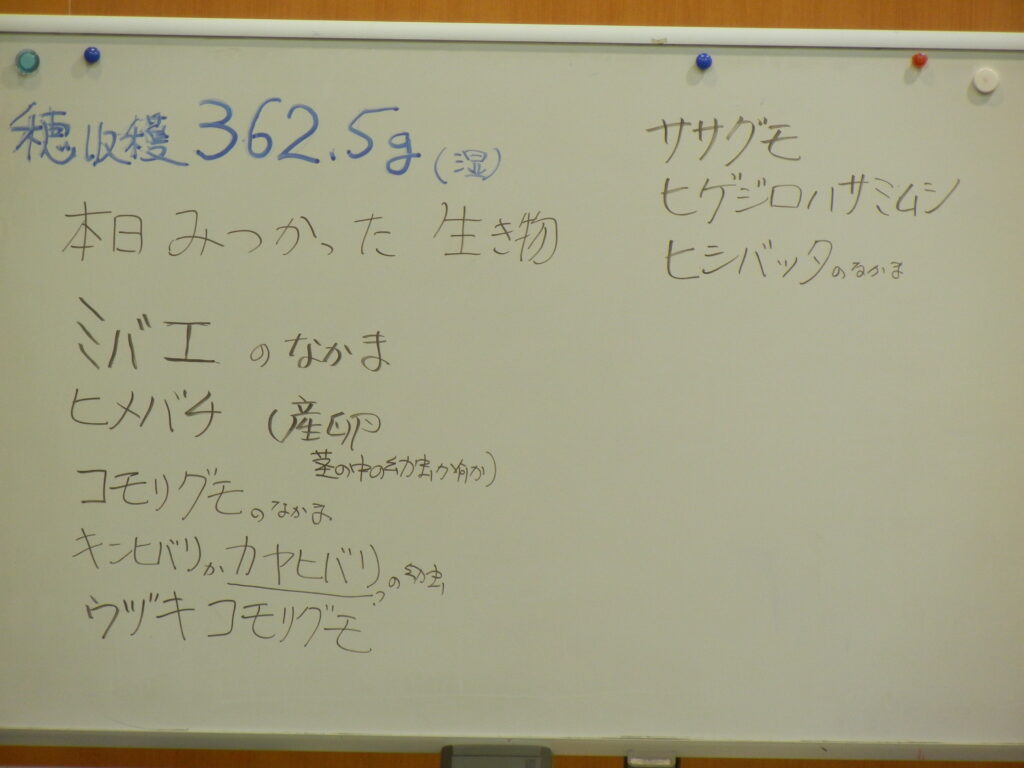 穂収穫 362.5g (湿)
本日みつかった 生き物
ミバエ のなかま
ヒメバチ (産卵
茎の中の幼虫か何か)
コモリグモのなかま
キンヒバリか カヤヒバリの幼虫
?
ウヅキコモリグモ
ササグモ
ヒゲジロハサミムシ
ヒシバッタのなかま